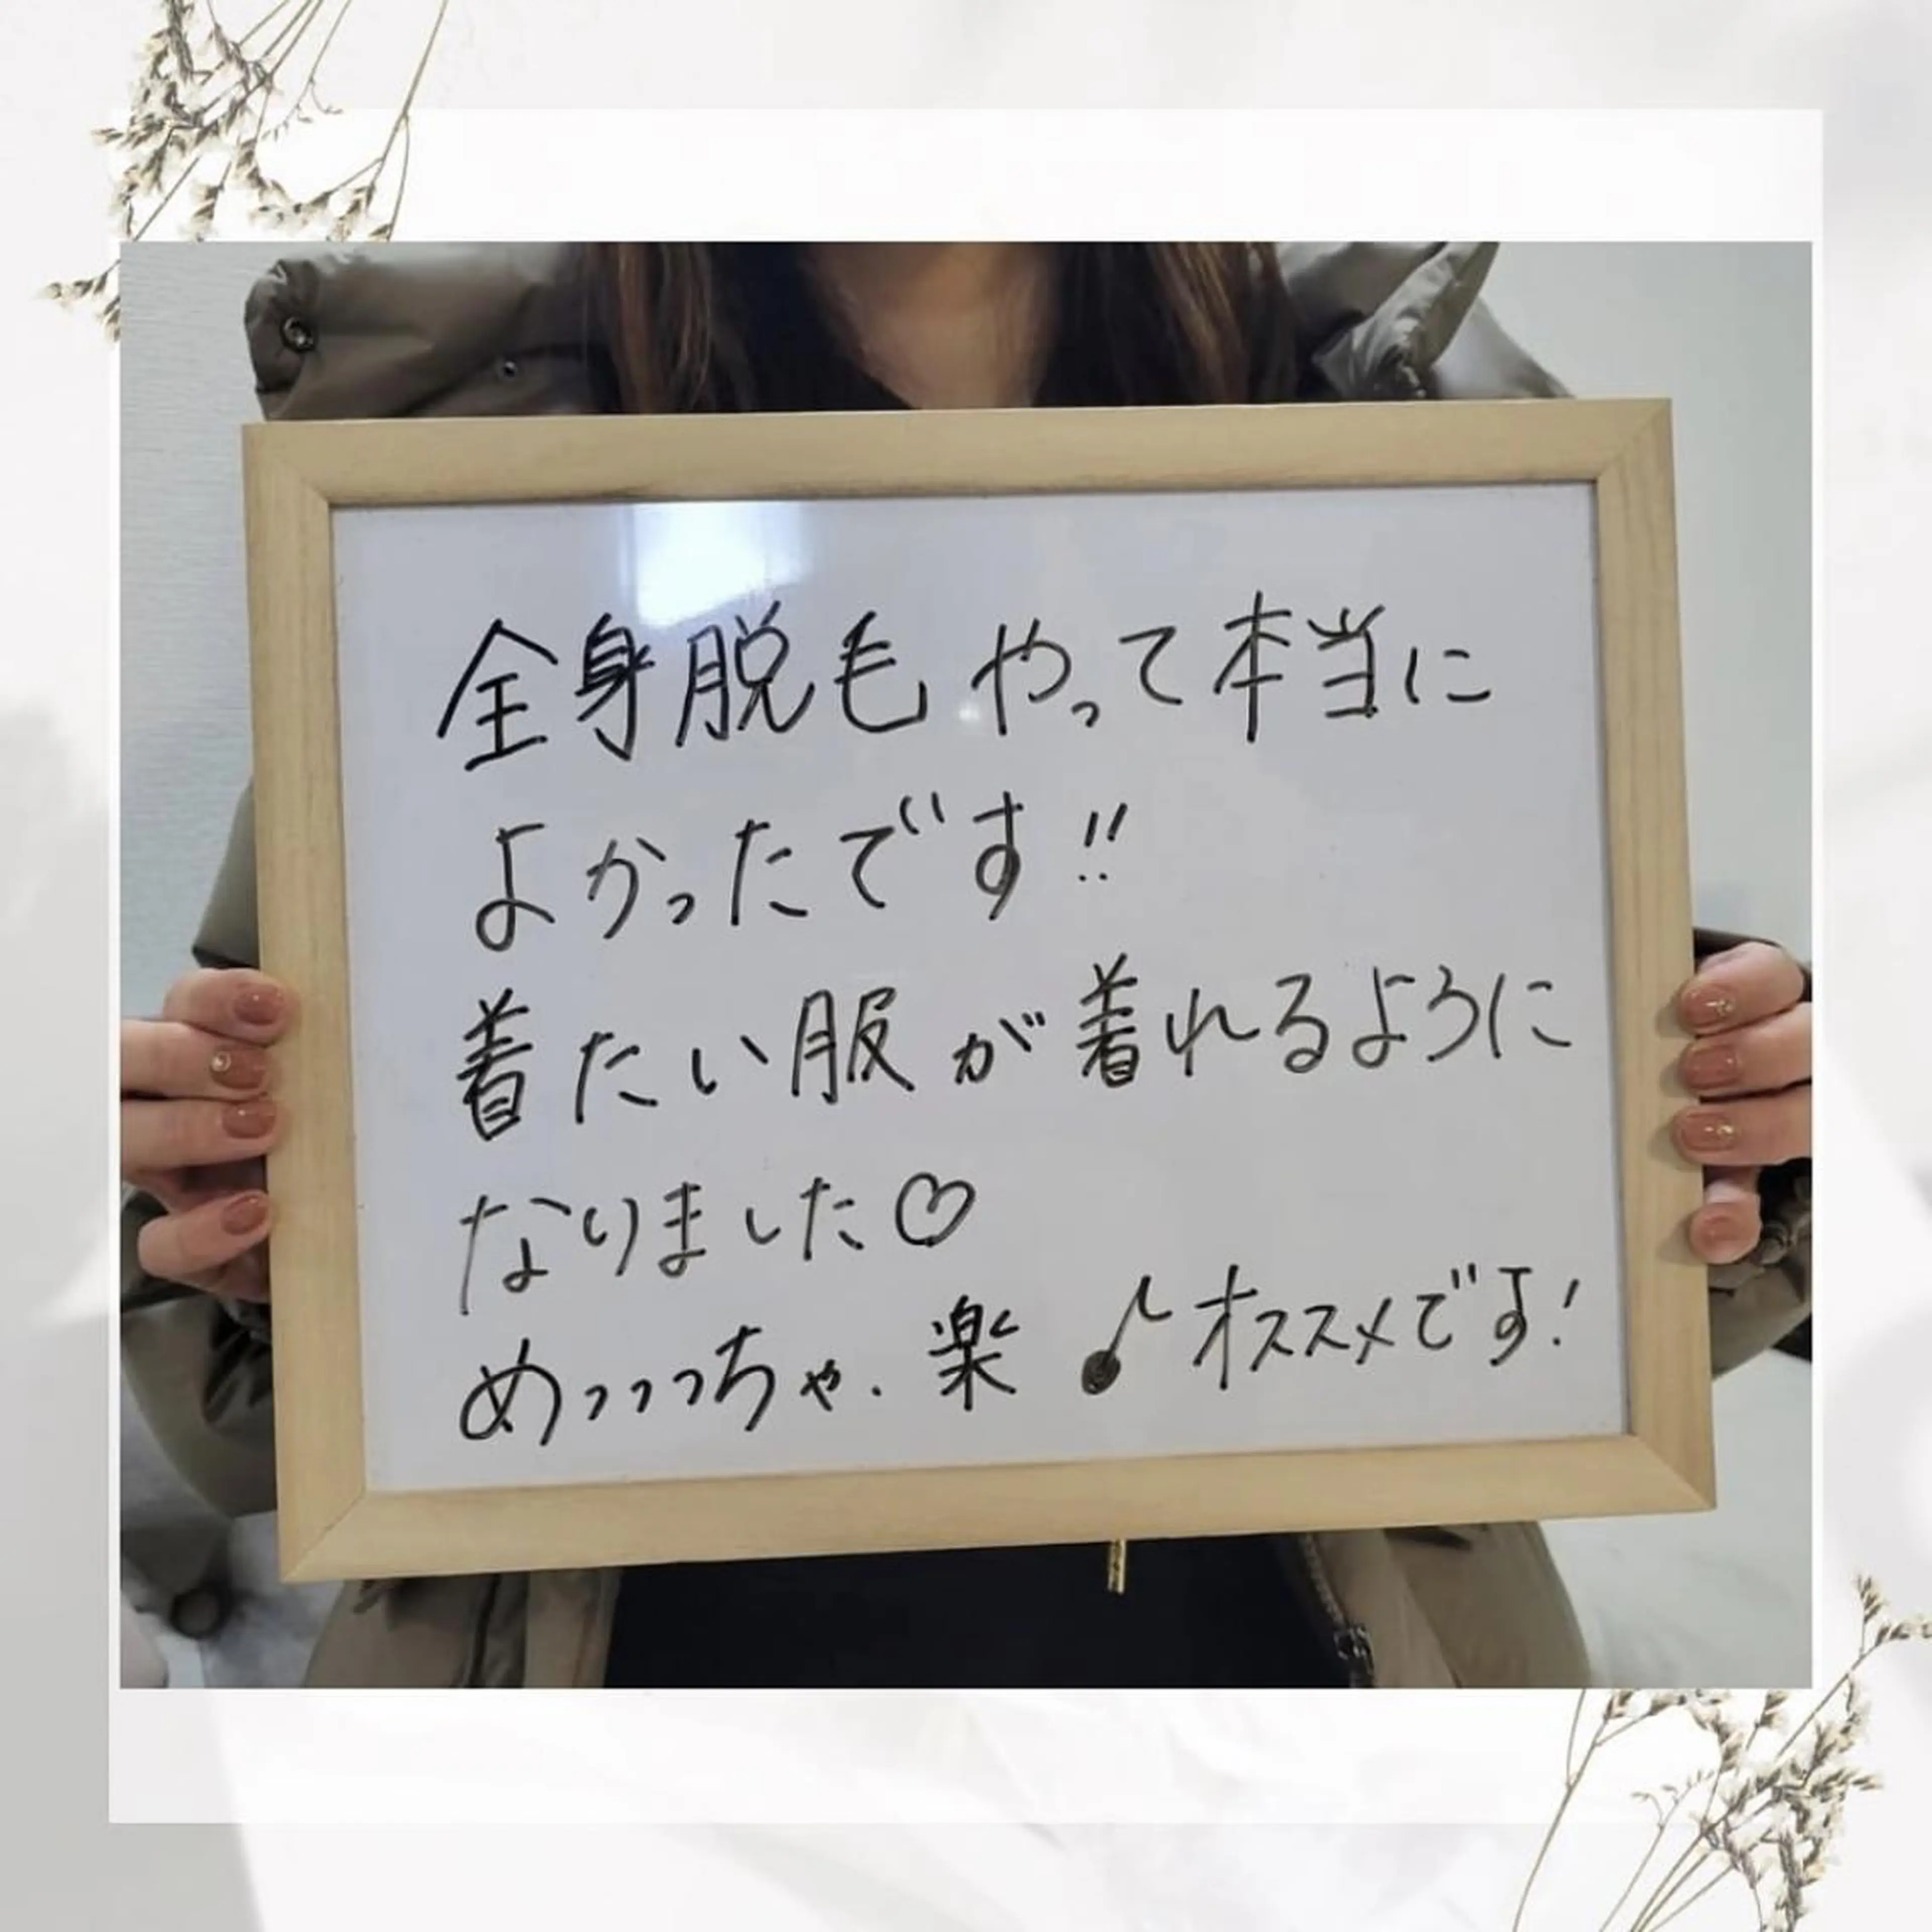 全身脱毛やって本当に
よかったです!!
着たい服が着れるように
なりました♡
めっっっっちゃ.楽♪オススメです!